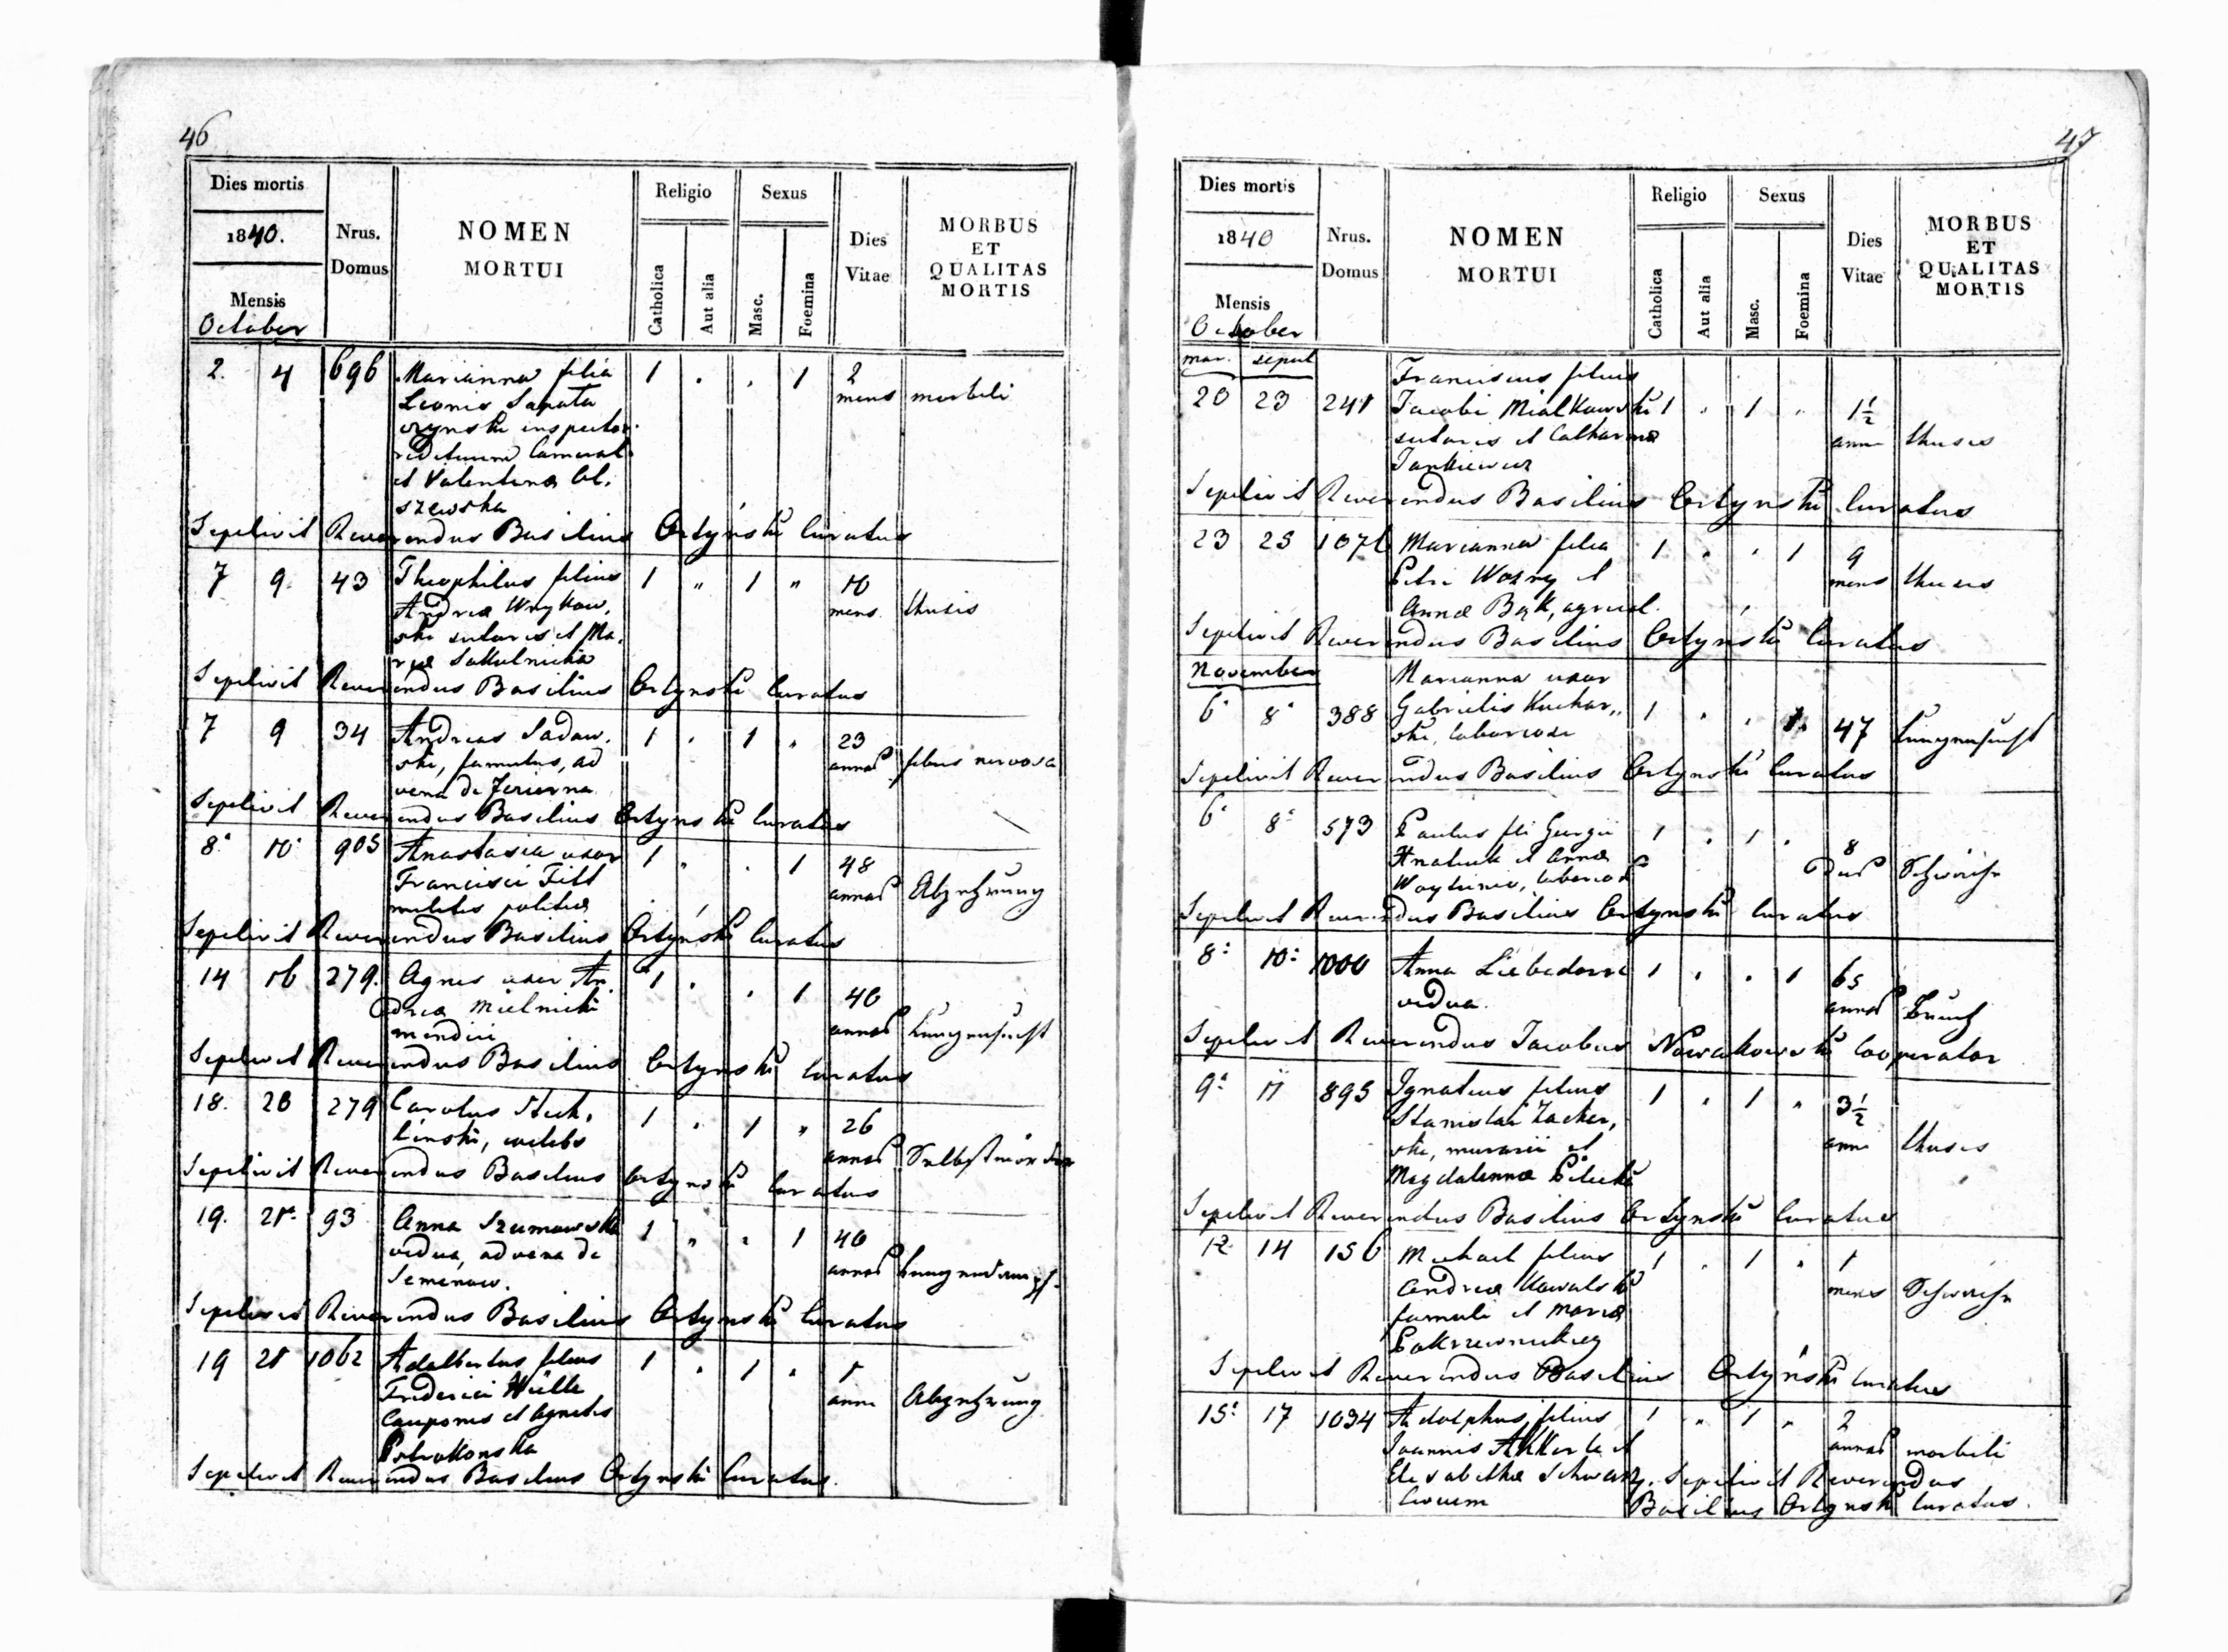 46
Dies mortis
1840.
Mensis
October
Nrus.
Domus
NOMEN
MORTUI
Religio
Catholica
Aut alia
Sexus
Masc.
Foemina
Dies
Vitae
MORBUS
ET
QUALITAS
MORTIS
2. 4 696 Marianna filia 1 . . 1 2
Leonis Saputa mens morbili
szynski inspector
redituum Cameral
et Valentina
szewska
Sepelivit Reverendus Basilius Ortyński Curatus
7 9. 43 Theophilus filius 1 " 1 " 10
Andreæ mens. thisis
ski sutoris et Ma,
riæ Sakulnicka
Sepelivit Reverendus Basilius Ortynski Curatus
7 9 34 Andreas Sadow, 1 . 1 " 23
ski, famulus, ad annos febris nervosa
vena de Jezierna
Sepelivit Reverendus Basilius Ortynski Curatus
8. 10. 905 Anastasia uxor 1 " . 1 48
Francisci Till annos Abzehrung
militis politiæ
Sepelivit Reverendus Basilius Ortyński Curatus
14 16 279. Agnes uxor An, 1 . . 1 40
dreæ Mielnicki annos Lungensucht
mendici
Sepelivit Reverendus Basilius Ortynski Curatus
18. 20 279 Carolus Stech, 1 . 1 " 26
linski, coelebs annos Selbstmörder
Sepelivit Reverendus Basilius Ortynski Curatus
19. 21. 93 Anna Szumowska 1 " " 1 40
vidua, advena de annos
Semenow.
Sepelivit Reverendus Basilius Ortynski Curatus
19 21 1062 Adalbertus filius 1 . 1 . 1
Friderici Hülle anni Abzehrung
Cauponis et Agnetis
Potrakonska
Sepelivit Reverendus Basilius Ortynski Curatus.
47
Dies mortis
1840
Mensis
October
Nrus.
Domus
NOMEN
MORTUI
Religio
Catholica
Aut alia
Sexus
Masc.
Foemina
Dies
Vitae
MORBUS
ET
QUALITAS
MORTIS
mor. sepul
Franciscus filius
20 23 241 Jacobi Mialkowski 1 " 1 " 1½
sutoris et Catharinæ anni thisis
Jankiewicz
Sepelivit Reverendus Basilius Ortynski Curatus
23 25 1071 Marianna filia 1 " . 1 9
Petri Wozny et mens thisis
Annæ Bąk, agricol.
Sepelivit Reverendus Basilius Ortyński Curatus
November
Marianna uxor
6. 8. 388 Gabrielis Kuchar,, 1 . . 1. 47 Lungensucht
ski, laboriosi
Sepelivit Reverendus Basilius Ortynski Curatus
6. 8. 573 Paulus fil Georgii 1 . 1 . 8
Hnatiuk et Annæ dies Schwäche
laborios
Sepelivit Reverendus Basilius Ortynski Curatus
8. 10. 1000 Anna 1 . . 1 65
vidua. annos Bruch
Sepelivit Reverendus Jacobus Nowakowski Cooperator
9. 11 895 Ignatius filius 1 . 1 " 3½
Stanislai Zacher, anni thisis
ski, murarii et
Magdalennæ Pilecki
Sepelivit Reverendus Basilius Ortynski Curatus
12. 14 156 Michael filius 1 . 1 . 1
Andreæ Kowalski mens Schwäche
famuli et Mariæ
Sepelivit Reverendus Basilius Ortyński Curatus
15. 17 1034 Adolphus filius 1 " 1 " 2
Joannis et annos morbili
Elisabethæ Schwarz, Sepelivit Reverendus
Civium Basilius Ortynski Curatus.